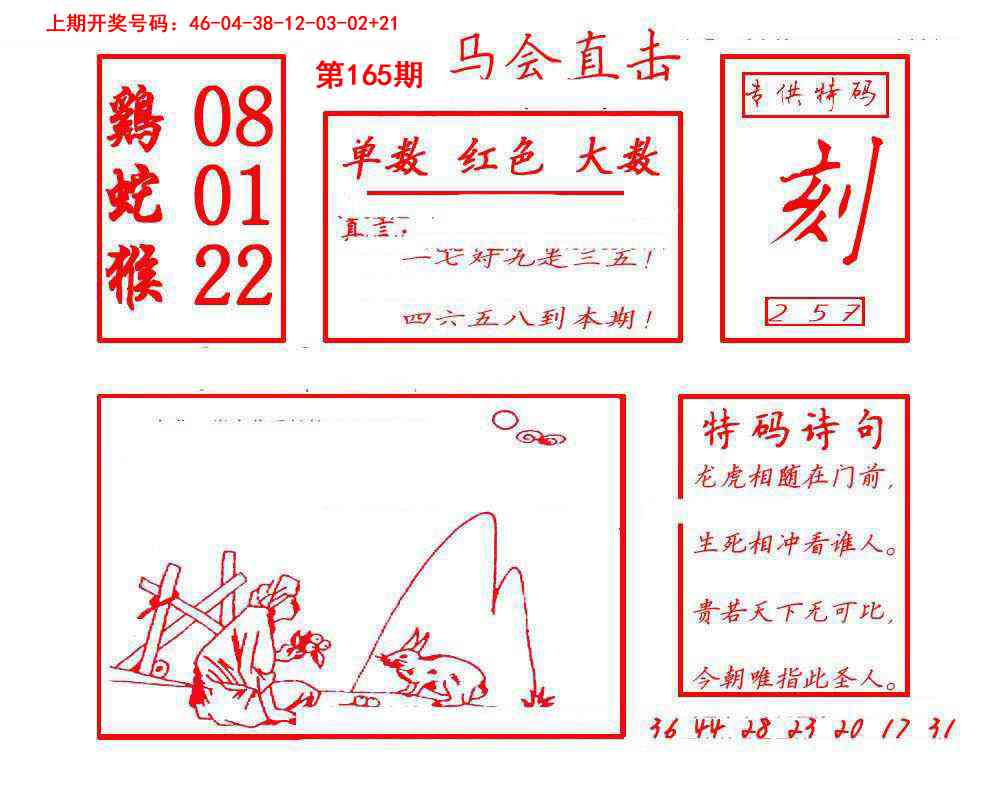 上期开奖号码：46-04-38-12-03-02+21
第165期
马会直击
鷄 08
蛇 01
猴 22
单数 红色 大数
真言：
一七好九是三五！
四六五八到本期！
专供特码
刻
2 5 7
特码诗句
龙虎相随在门前，
生死相冲看谁人。
贵若天下无可比，
今朝唯指此圣人。
36 44 28 23 20 17 31